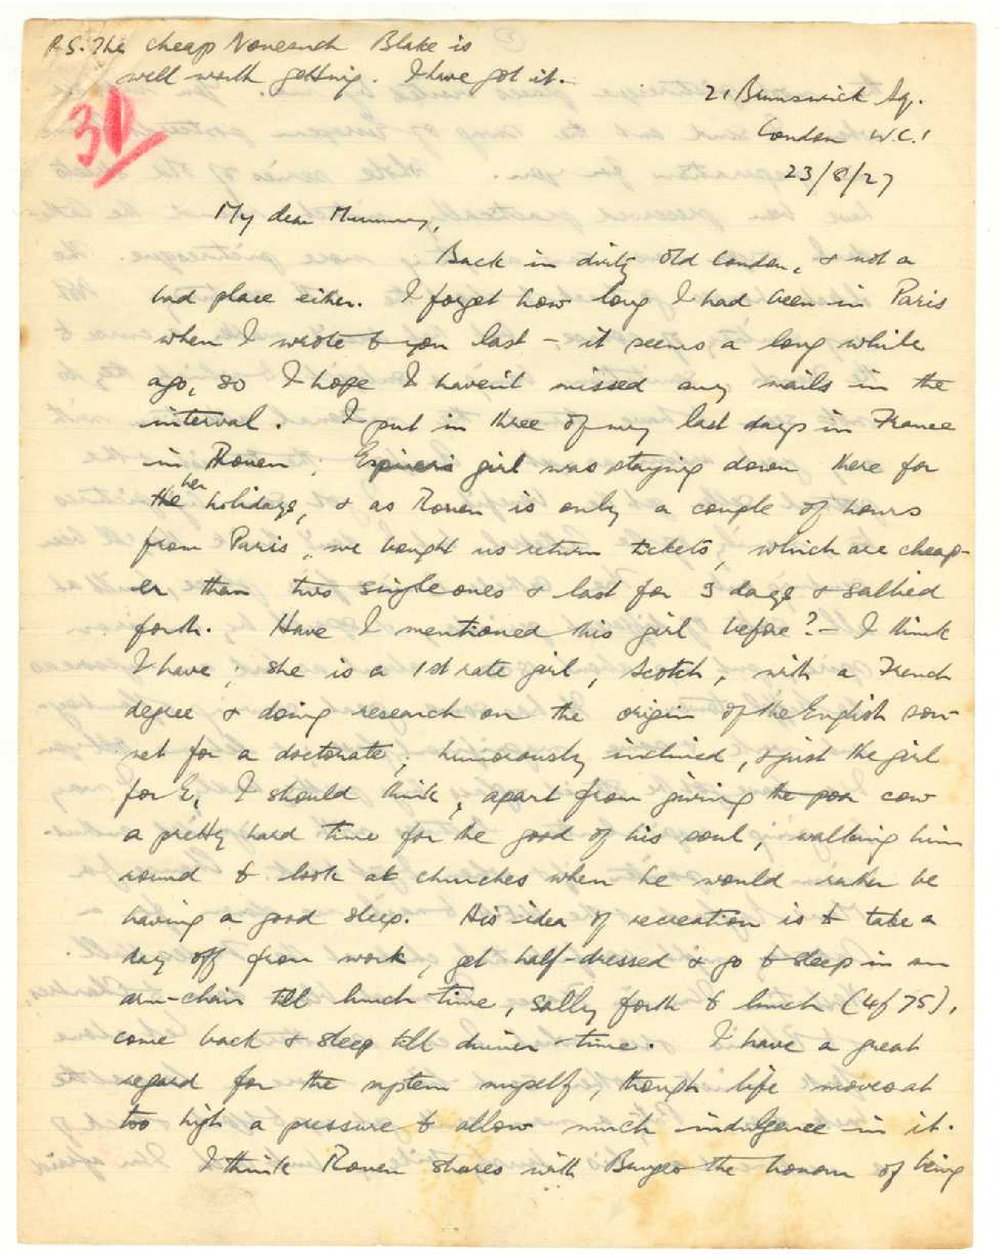 P.S. The cheap Nonesuch Blake is
well worth getting. I have got it.
31
21 Brunswick Sq.
London W.C.1
23/8/27
My dear Mummy,
Back in dirty old London, & not a
bad place either. I forget how long I had been in Paris
when I wrote to you last – it seems a long while
ago, so I hope I haven't missed any mails in the
interval. I put in three of my last days in France
in Rouen; girl was staying down there for
the her holidays, & as Rouen is only a couple of hours
from Paris, we bought us return tickets, which are cheap-
er than two single ones & last for 3 days & sallied
forth. Have I mentioned this girl before? – I think
I have; she is a 1st rate girl, Scotch, with a French
degree & doing research on the origin of the English son-
net for a doctorate; humorously inclined, & just the girl
for E, I should think, apart from giving the poor cow
a pretty hard time for the good of his soul, walking him
round to look at churches when he would rather be
having a good sleep. His idea of recreation is to take a
day off from work, get half-dressed & go to sleep in an
arm-chair till lunch time, sally forth to lunch (4f 75),
come back & sleep till dinner time. I have a great
regard for the system myself, though life moves at
too high a pressure to allow much indulgence in it.
I think Rouen shares with Bruges the honour of being